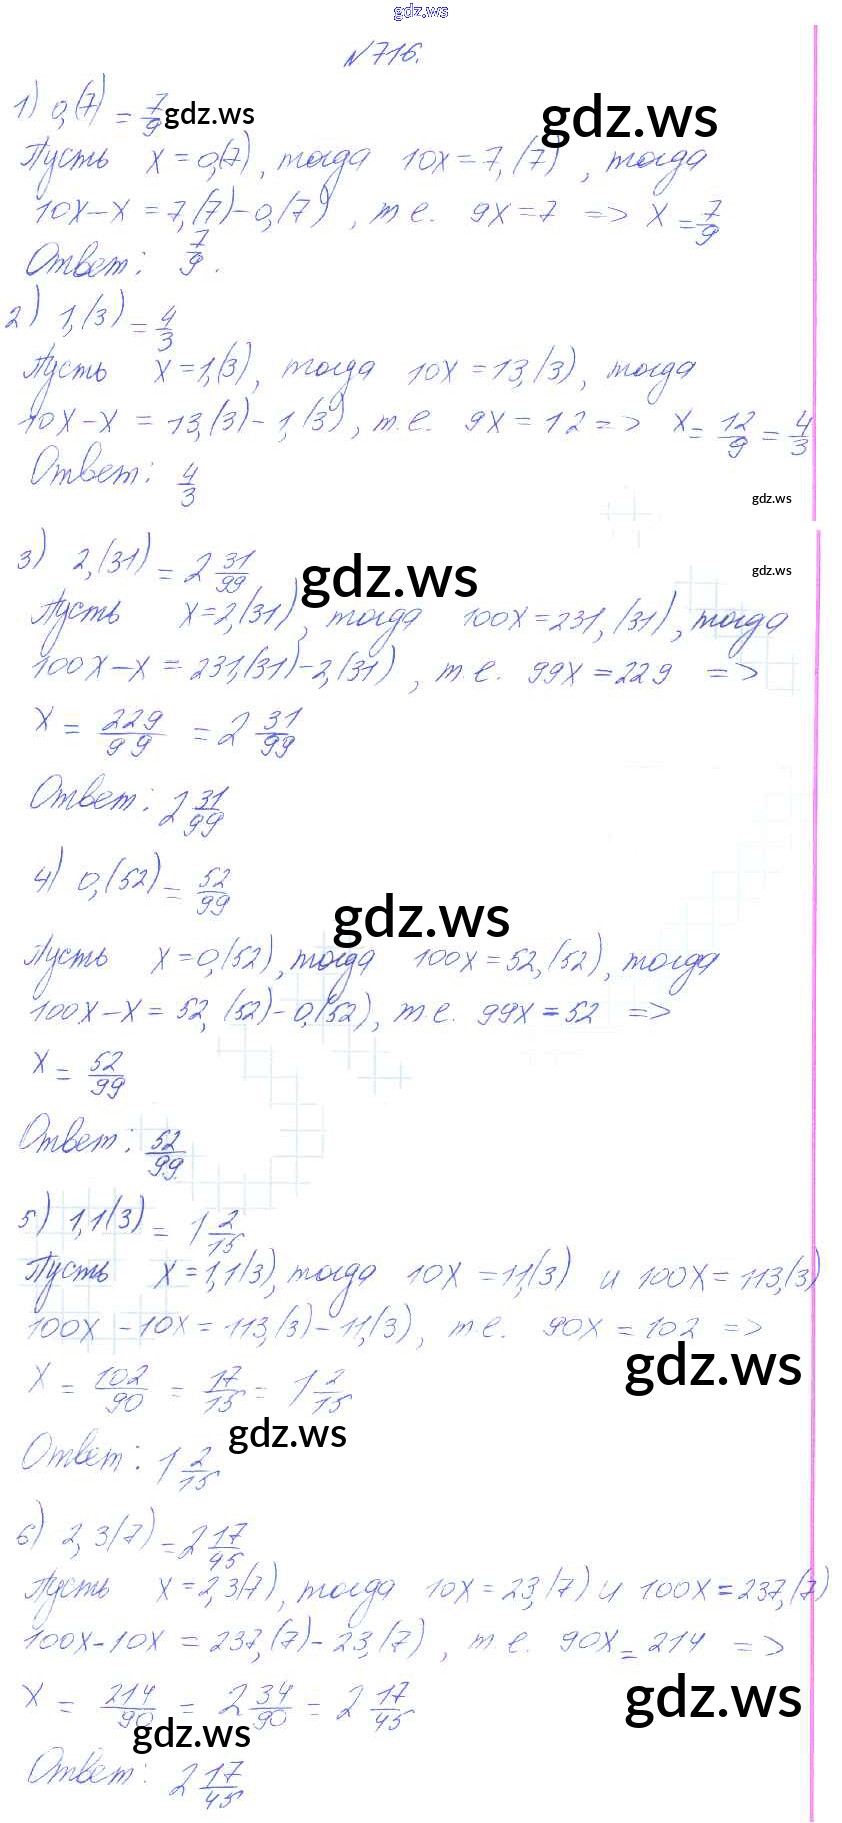 gdz.ws
N716.
1) 0,(7) = 7/9 gdz.ws gdz.ws
Пусть x=0,(7), тогда 10x=7,(7), тогда
10x-x=7,(7)-0,(7), т.е. 9x=7 => x=7/9
Ответ: 7/9.
2) 1,(3) = 4/3
Пусть x=1,(3), тогда 10x=13,(3), тогда
10x-x=13,(3)-1,(3), т.е. 9x=12=> x=12/9=4/3
Ответ: 4/3
gdz.ws
3) 2,(31) = 2 31/99 gdz.ws gdz.ws
Пусть x=2,(31), тогда 100x=231,(31), тогда
100x-x=231,(31)-2,(31), т.е. 99x=229 =>
x = 229/99 = 2 31/99
Ответ: 2 31/99
4) 0,(52) = 52/99
gdz.ws
Пусть x=0,(52), тогда 100x=52,(52), тогда
100x-x=52,(52)-0,(52), т.е. 99x=52 =>
x = 52/99
Ответ: 52/99
5) 1,1(3) = 1 2/15
Пусть x=1,1(3), тогда 10x=11,(3) и 100x=113,(3)
100x-10x=113,(3)-11,(3), т.е. 90x=102 =>
gdz.ws
x = 102/90 = 17/15 = 1 2/15
gdz.ws
Ответ: 1 2/15
6) 2,3(7) = 2 17/45
Пусть x=2,3(7), тогда 10x=23,(7) и 100x=237,(7)
100x-10x=237,(7)-23,(7), т.е. 90x=214 =>
x = 214/90 = 2 34/90 = 2 17/45
gdz.ws
gdz.ws
Ответ: 2 17/45